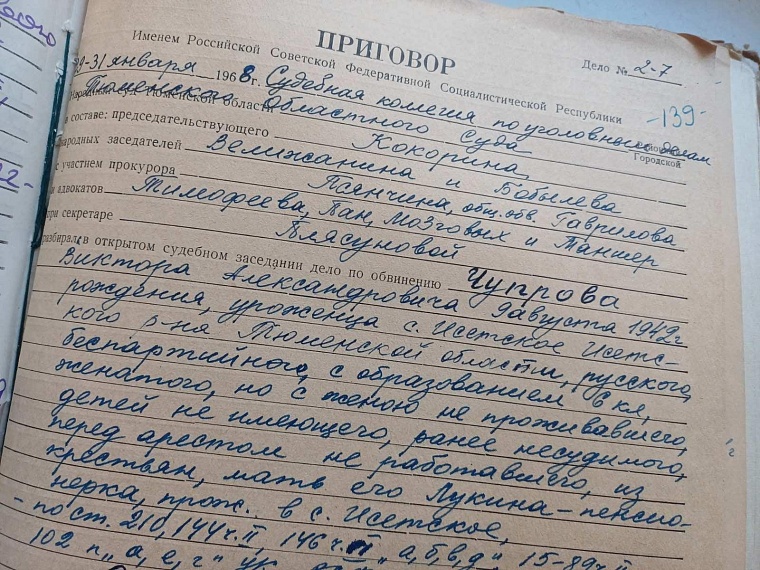 ПРИГОВОР
Дело № 2-7
-139-
Именем Российской Советской Федеративной Социалистической Республики
29-31 января 1968 г. Судебная колегия по уголовным делам
Народный суд Тюменской области
Тюменского Областного Суда
Городской
в составе: председательствующего Кокорина,
народных заседателей Велижанина и Бобылева
с участием прокурора Пянчина, общ. обв. Гаврилова
и адвокатов Тимофеева, Пан, Мозговых и Таншер
при секретаре Плясуновой
разбирал в открытом судебном заседании дело по обвинению Чупрова
Виктора Александровича 9 августа 1942 г
рождения, уроженца с. Исетское Исетс-
кого р-на Тюменской области, русского,
беспартийного, с образованием 6 кл,
женатого, но с женою не проживавшего,
детей не имеющего, ранее несудимого,
перед арестом не работавшего, из
крестьян, мать его Лукина - пенсио-
нерка, прож. в с. Исетское,
- по ст. 210, 144 ч. II, 146 ч. II "а, б, в, д", 15-89 ч. II
102 п "а, е, г" УК